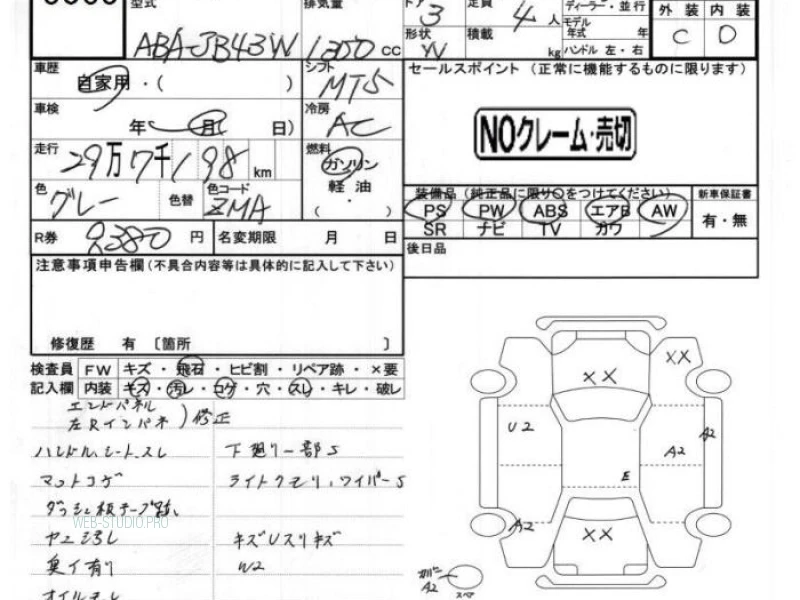 型式 ABA-JB43W
排気量 1300 cc
ドア 3
定員 4 人
ディーラー・並行
形状 W
積載 kg
モデル年式 年式
ハンドル 左・右
外装 内装
C D
車歴 自家用・( )
シフト MT5
車検 年 月( 日)
冷房 AC
走行 29万7千198 km
燃料 ガソリン・軽油・( )
色 グレー
色替
色コード ZMA
R券 9380 円
名変期限 月 日
セールスポイント (正常に機能するものに限ります)
NOクレーム・売切
装備品 (純正品に限り〇をつけてください)
新車保証書
PS PW ABS エアB AW
SR ナビ TV カワ
有・無
後日品
注意事項申告欄 (不具合内容等は具体的に記入して下さい)
修復歴 有 〔箇所 〕
検査員記入欄
FW キズ・飛石・ヒビ割・リペア跡・×要
内装 キズ・汚レ・コゲ・穴・スレ・キレ・破レ
エンドパネル
左Rインパネ ) 修正
ハンドル、シート、スレ
下廻り一部S
マットコゲ
ライトクモリ、ワイパーS
ダッシュ板テープ跡、
WEB-STUDIO.PRO
キズUスリキズ
W2
臭イ有り
XX
XX
U2
A2
A2
E
A2
XX
カバー
A2
スペア